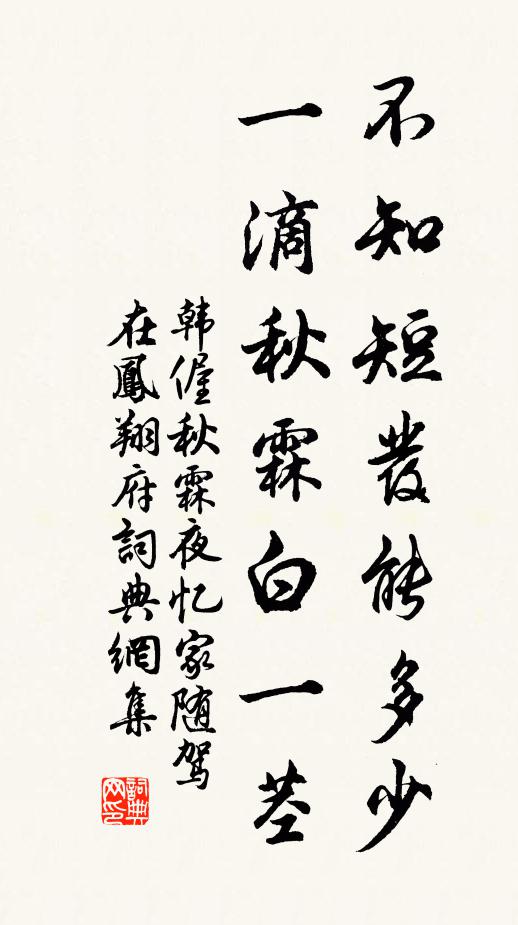 不知短發能多少
一滴秋霖白一茎
韩偓秋霖夜忆家随駕
在鳳翔府詞典網集
詞典
网印